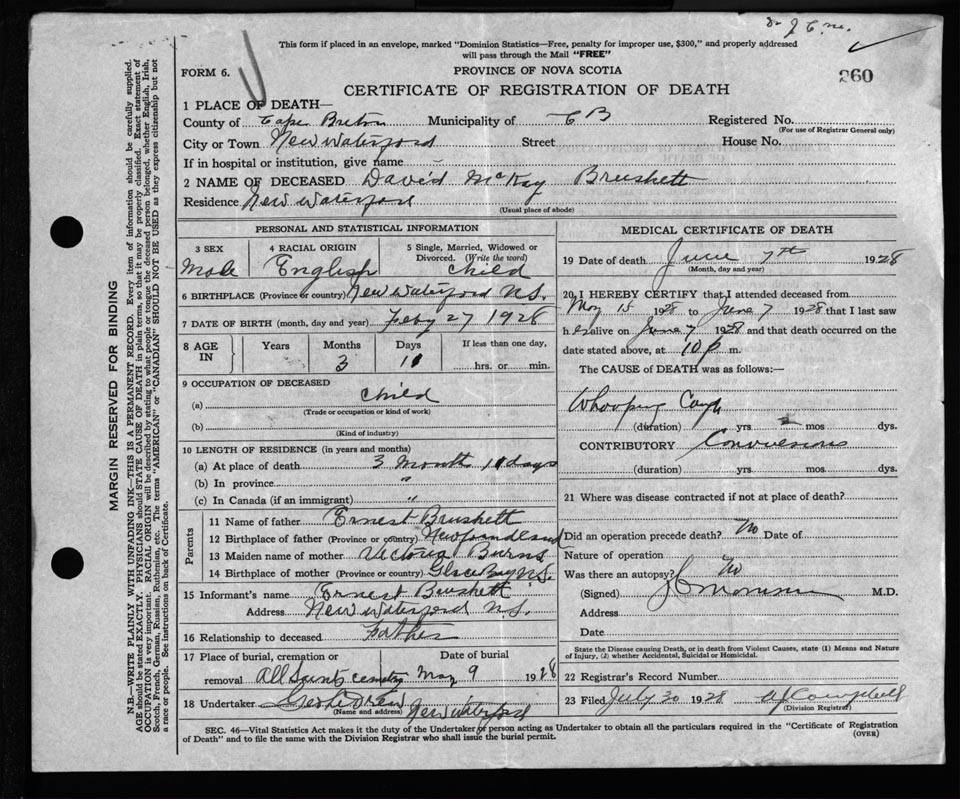 This form if placed in an envelope, marked "Dominion Statistics—Free, penalty for improper use, $300," and properly addressed
will pass through the Mail "FREE"
FORM 6.
PROVINCE OF NOVA SCOTIA
360
CERTIFICATE OF REGISTRATION OF DEATH
1 PLACE OF DEATH—
County of Cape Breton Municipality of CB Registered No.
(For use of Registrar General only)
City or Town New Waterford Street House No.
If in hospital or institution, give name
2 NAME OF DECEASED David McKay Bruskett
Residence New Waterford
(Usual place of abode)
PERSONAL AND STATISTICAL INFORMATION
3 SEX 4 RACIAL ORIGIN 5 Single, Married, Widowed or
Divorced. (Write the word)
Male English Child
6 BIRTHPLACE (Province or country) New Waterford N.S.
7 DATE OF BIRTH (month, day and year) Feby 27 1928
8 AGE IN Years Months Days If less than one day,
3 11 hrs. or min.
9 OCCUPATION OF DECEASED
(a) Child
(Trade or occupation or kind of work)
(b)
(Kind of industry)
10 LENGTH OF RESIDENCE (in years and months)
(a) At place of death 3 Month 11 days
(b) In province "
(c) In Canada (if an immigrant) "
Parents
11 Name of father Ernest Bruskett
12 Birthplace of father (Province or country) Newfoundland
13 Maiden name of mother Victoria Burns
14 Birthplace of mother (Province or country) Glace Bay N.S.
15 Informant's name Ernest Bruskett
Address New Waterford N.S.
16 Relationship to deceased Father
17 Place of burial, cremation or Date of burial
removal All Saints cemetry May 9 1928
18 Undertaker
(Name and address) New Waterford
MEDICAL CERTIFICATE OF DEATH
19 Date of death June 7th 1928
(Month, day and year)
20 I HEREBY CERTIFY that I attended deceased from
May 15 1928 to June 7 1928 that I last saw
h alive on June 7 1928 and that death occurred on the
date stated above, at 10 p m.
The CAUSE of DEATH was as follows:—
Whooping Cough
(duration) yrs mos dys.
CONTRIBUTORY Convulsions
(duration) yrs. mos. dys.
21 Where was disease contracted if not at place of death?
Did an operation precede death? No Date of
Nature of operation
Was there an autopsy? No
(Signed) M.D.
Address
Date
State the Disease causing Death, or in death from Violent Causes, state (1) Means and Nature
of Injury, (2) whether Accidental, Suicidal or Homicidal.
22 Registrar's Record Number
23 Filed July 30 1928 Campbell
(Division Registrar)
SEC. 46—Vital Statistics Act makes it the duty of the Undertaker or person acting as Undertaker to obtain all the particulars required in the "Certificate of Registration
of Death" and to file the same with the Division Registrar who shall issue the burial permit.
(OVER)
MARGIN RESERVED FOR BINDING
N.B. WRITE PLAINLY WITH UNFADING INK—THIS IS A PERMANENT RECORD. Every item of information should be carefully supplied.
AGE should be stated EXACTLY. PHYSICIANS should STATE CAUSE OF DEATH in plain terms, so that it may be properly classified. Exact statement of
OCCUPATION is very important. RACIAL ORIGIN will be described by stating to what people or tongue the deceased person belonged, whether English, Irish,
Scotch, French, German, Russian, Ruthenian, etc. The terms "AMERICAN" or "CANADIAN" SHOULD NOT BE USED as they express citizenship but not
a race or people. See instructions on back of Certificate.